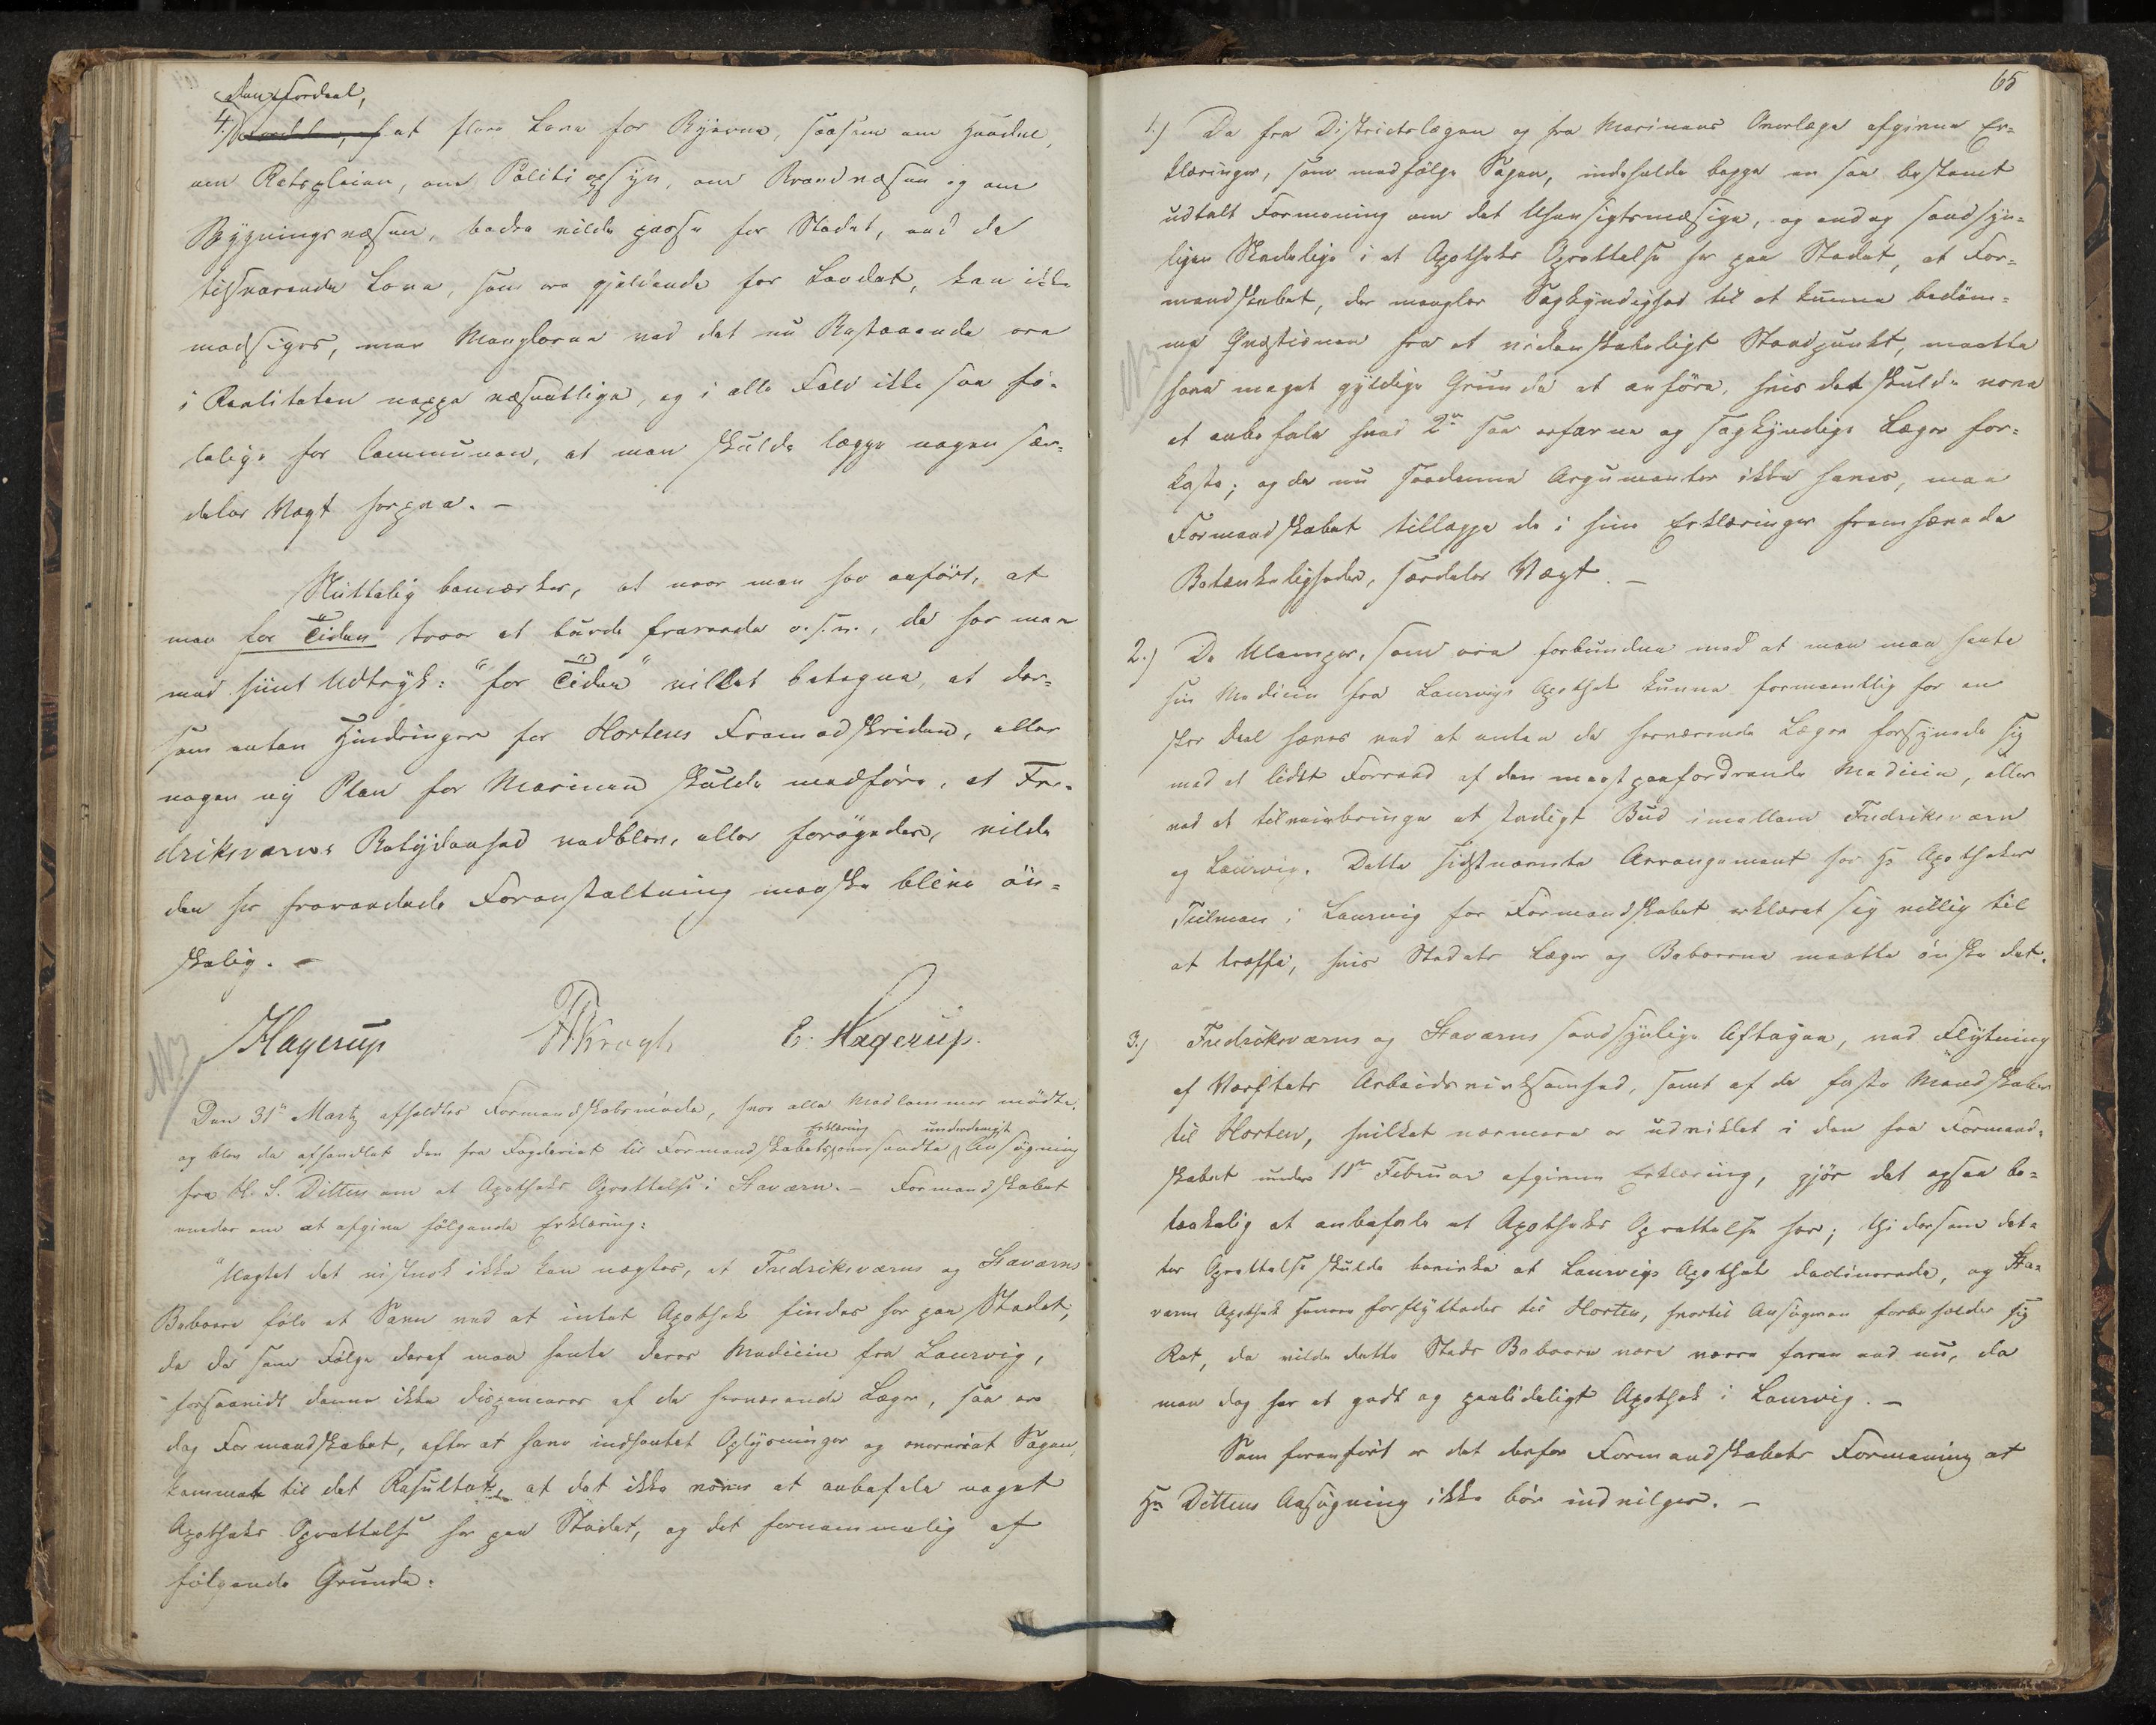 den Fordeel,
4.) at flere Love for Byerne, saasom om Handel,
om Retspleien, om Politiopsyn, om Brandvæsen og om
Bygningsvæsen, bedre vilde passe for Stedet, end de
tilsvarende Love, som ere gjeldende for Landet, kan ikke
modsiges, men Manglerne ved det nu Bestaaende ere
i Realiteten neppe væsentlige, og i alle Fald ikke saa fø-
lelige for Communen, at man skulde lægge nogen sær-
deles Vægt herpaa. –
Sluttelig bemærkes, at naar man har anført, at
man for Tiden troer at burde fraraade o.s.v., da har man
med hiint Udtryk: "for Tiden" villet betegne, at der-
som enten Hindringer for Hortens Fremadskriden, eller
nogen ny Plan for Marinen skulde medføre, at Fre-
driksværns Betydenhed vedblev, eller forøgedes, vilde
den her fraraadede Foranstaltning maaske blive øn-
skelig. –
Hagerup Krogh E. Hagerup.
Den 31te Martz afholdtes Formandskabsmøde, hvor alle Medlemmer mødte,
Erklæring underdanigst
og blev da afhandlet den fra Fogderiet til Formandskabets oversendte Ansøgning
fra H. S. Ditten om et Apotheks Oprettelse i Staværn. – Formandskabet
enedes om at afgive følgende Erklæring:
"Uagtet det vistnok ikke kan negtes, at Fredriksværns og Staværns
Beboere føle et Savn ved at intet Apothek findes her paa Stedet,
da de som Følge deraf maa hente deres Medicin fra Laurvig,
forsaavidt denne ikke dispenceres af de herværende Læger, saa er
dog Formandskabet, efter at have indhentet Oplysninger og overveiet Sagen,
kommet til det Resultat, at det ikke vover at anbefale noget
Apotheks Oprettelse her paa Stedet, og det fornemmelig af
følgende Grunde:
65
1.) Da fra Districtslægen og fra Marinens Overlæge afgivne Er-
klæringer, som medfølge Sagen, indeholde begge en saa bestemt
udtalt Formening om det Uhensigtsmæssige, og endog sandsyn-
ligen Skadelige i et Apotheks Oprettelse her paa Stedet, at For-
mandskabet, der mangler Sagkyndighed til at kunne bedøm-
me Qvæstionen fra et videnskabeligt Standpunkt, maatte
have meget gyldige Grunde at anføre, hvis det skulde vove
at anbefale hvad 2de saa erfarne og sagkyndige Læger for-
kaste; og da nu saadanne Argumenter ikke haves, maa
Formandskabet tillægge de i hine Erklæringer fremhævede
Betænkeligheder, særdeles Vægt. –
2.) De Ulemper, som ere forbundne med at man maa hente
sin Medicin fra Laurvigs Apothek kunne formeentlig for en
stor Deel hæves ved at enten de herværende Læger forsynede sig
med et lidet Forraad af den meest paafordrende Medicin, eller
ved at tilveiebringe et stadigt Bud imellem Fredriksværn
og Laurvig. Dette sidstnævnte Arrangement har Hr Apotheker
Tulman i Laurvig for Formandskabet erklæret sig villig til
at træffe, hvis Stedets Læger og Beboerne maatte ønske det.
3.) Fredriksværns og Staværns sandsynlige Aftagen, ved Flytning
af Værftets Arbeidsvirksomhed, samt af de faste Mandskaber
til Horten, hvilket nærmere er udviklet i den fra Formand-
skabet under 11te Februar afgivne Erklæring, gjør det ogsaa be-
tænkelig at anbefale et Apotheks Oprettelse her; thi dersom det-
tes Oprettelse skulde bevirke at Laurvigs Apothek declinerede, og Sta-
værns Apothek senere forflyttedes til Horten, hvortil Ansøgeren forbeholder sig
Ret, da vilde dette Steds Beboere være værre faren end nu, da
man dog har et godt og paalideligt Apothek i Laurvig. –
Som foranført er det derfor Formandskabets Formening at
Hr Dittens Ansøgning ikke bør indvilges. –